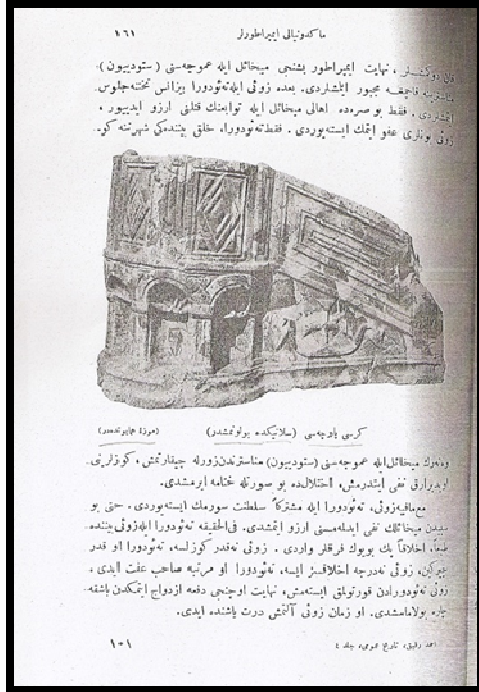 ماكدونيالی ايمپراطورلر
١٦١
، نهايت ايمپراطور بشنجی ميخائل ايله عموجه‌سنی (ستوديون)
قاچمغه مجبور ايتمشلردی . بعده زوئی ايله تئودورا بيزانس تختنه جلوس
ايتمشلردی . فقط بو صره‌ده اهالی ميخائل ايله توابعنك قتلنی آرزو ايديیور ،
زوئی بونلری عفو ايتمك ايسته‌یوردی . فقط تئودورا ، خلق بيننده‌كی شهرتنه كوره
كرسی پارچه‌سی (سلانيكده بولونمشدر)
(موزهٔ همايونده‌در)
ميخائل ايله عموجه‌سنی (ستوديون) مناستردن زورله چيقارتمش ، كوزلرينی
نفی ايتديرمش ، اختلالده بو صورتله ختامه ايرمشدی .
مع‌مافيه زوئی ، تئودورا ايله مشتركاً سلطنت سورمك ايسته‌یوردی . حتی بو
ميخائلك نفی ايدلمه‌سنی آرزو ايتمشدی . فی‌الحقيقه تئودورا ايله زوئی بيننده ،
طبعاً ، اخلاقاً پك بويوك فرقلر واردی . زوئی نه‌قدر كوزلسه ، تئودورا او قدر
چيركين ، زوئی نه‌درجه اخلاقسز ايسه ، تئودورا او مرتبه صاحب عفت ايدی .
زوئی تئودورادن قورتولمق ايسته‌مش ، نهايت اوچنجی دفعه ازدواج ايتمكدن باشقه
چاره بولامامشدی . او زمان زوئی آلتمش درت ياشنده ايدی .
احمد رفيق ، تاريخ عمومی ، جلد ٤
١٠١